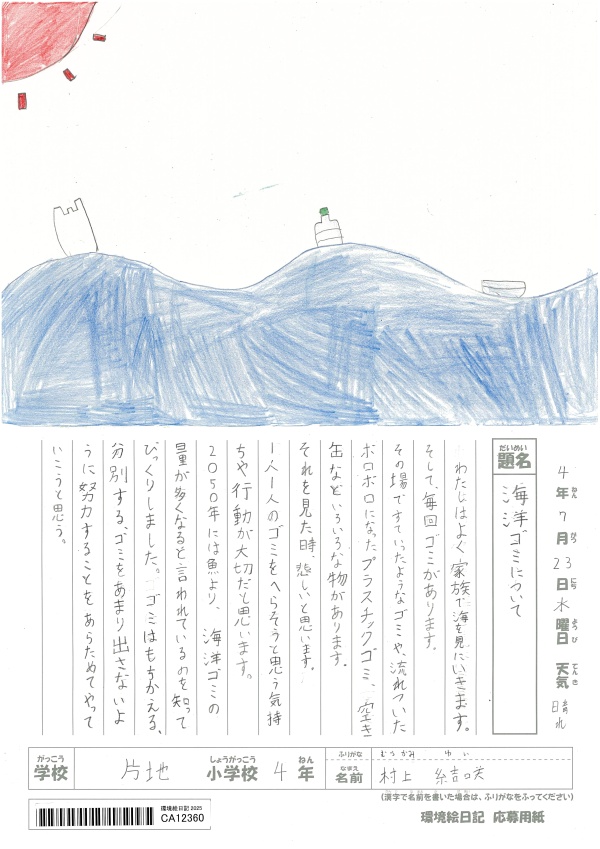 4年ねん7月がつ23日にち水曜日ようび 天気てんき晴れ
だいめい
題名 海洋ゴミについて
わたしはよく家族で海を見にいきます。
そして、毎回ゴミがあります。
その場ですていったようなゴミや、流れついた
ボロボロになったプラスチックゴミ、空き
缶などいろいろな物があります。
それを見た時、悲しいと思います。
1人1人のゴミをへらそうと思う気持
ちや行動が大切だと思います。
2050年には魚より、海洋ゴミの
量が多くなると言われているのを知って
びっくりしました。ゴミはもちかえる、
分別する、ゴミをあまり出さないよ
うに努力することをあらためてやって
いこうと思う。
がっこう しょうがっこう ねん
学校 片地 小学校 4年
ふりがな むらかみ ゆい
なまえ
名前 村上 結咲
(漢字で名前を書いた場合は、ふりがなをふってください)
環境絵日記 応募用紙
環境絵日記 2025
CA12360